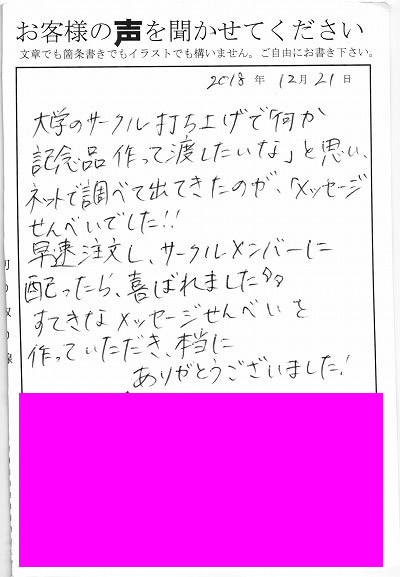 お客様の声を聞かせてください
文章でも箇条書きでもイラストでも構いません。ご自由にお書き下さい。
2018年 12月 21日
大学のサークル打ち上げで「何か
記念品作って渡したいな」と思い、
ネットで調べて出てきたのが、「メッセージ
せんべいでした!!
早速注文し、サークルメンバーに
配ったら、喜ばれました
すてきなメッセージせんべいを
作っていただき、本当に
ありがとうございました!